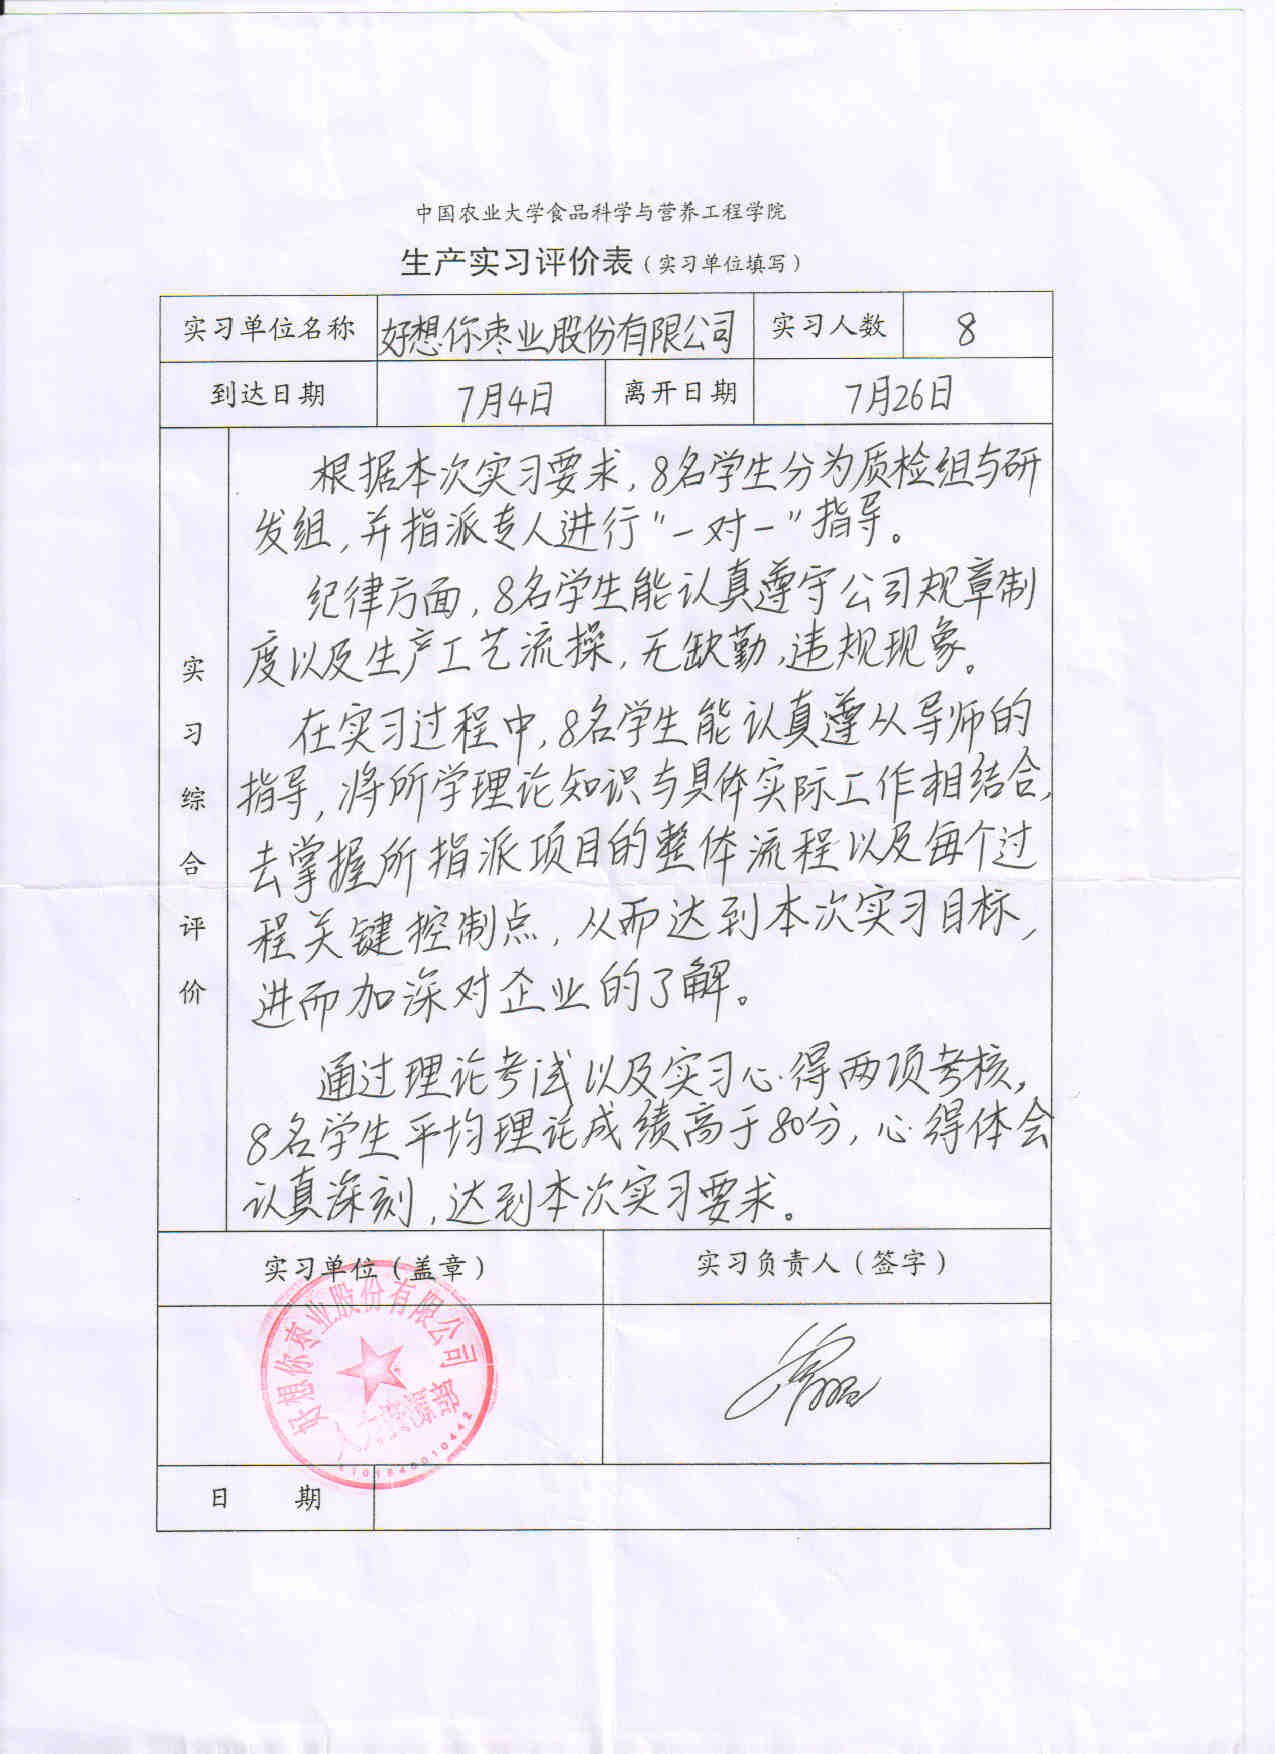 中国农业大学食品科学与营养工程学院
生产实习评价表（实习单位填写）
实习单位名称 好想你枣业股份有限公司 实习人数 8
到达日期 7月4日 离开日期 7月26日
实习综合评价
根据本次实习要求，8名学生分为质检组与研
发组，并指派专人进行“一对一”指导。
纪律方面，8名学生能认真遵守公司规章制
度以及生产工艺流操，无缺勤，违规现象。
在实习过程中，8名学生能认真遵从导师的
指导，将所学理论知识与具体实际工作相结合，
去掌握所指派项目的整体流程以及每个过
程关键控制点，从而达到本次实习目标，
进而加深对企业的了解。
通过理论考试以及实习心得两项考核，
8名学生平均理论成绩高于80分，心得体会
认真深刻，达到本次实习要求。
实习单位（盖章） 实习负责人（签字）
好想你枣业股份有限公司
人力资源部
日 期